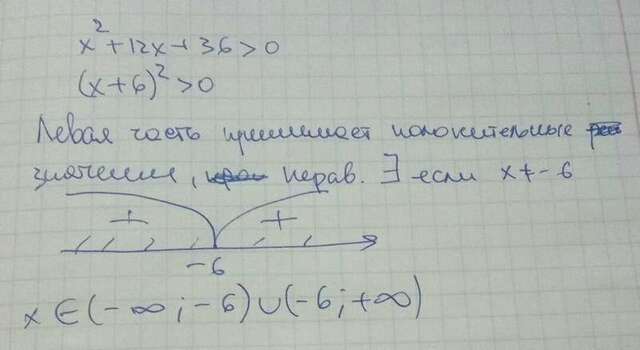 x²+12x+36>0
(x+6)²>0
Левая часть принимает положительные
значения, нерав. ∃ если x≠-6
+ +
-6
x∈(-∞;-6)∪(-6;+∞)